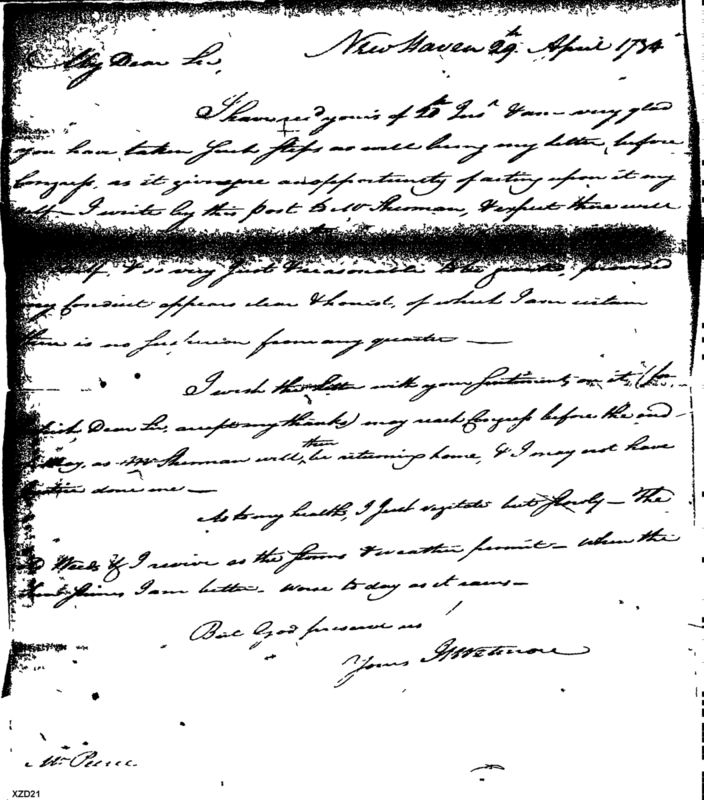 New Haven 29th April 1784
My Dear Sir,
I have recd yours of 20th Inst & am very glad
you have taken such steps as will bring my letter before
Congress, as it gives me an opportunity of acting upon it my
self - I write by this post to Mr Sherman, & expect there will
self, & is very just & reasonable to be granted, provided
my Conduct appears clear & honest, of which I am certain
there is no suspicion from any quarter —
I wish the letter with your sentiments on it (for
which Dear Sir, accept my thanks) may reach Congress before the end
May, as Mr Sherman will then be returning home, & I may not have
justice done me —
As to my health, I just vegitate but slowly — The
Weeks if I revive as the storms & weather permit - when the
Sun shines I am better - worse to day as it rains —
But God preserve us!
Yours
Mr Pierce
XZD21